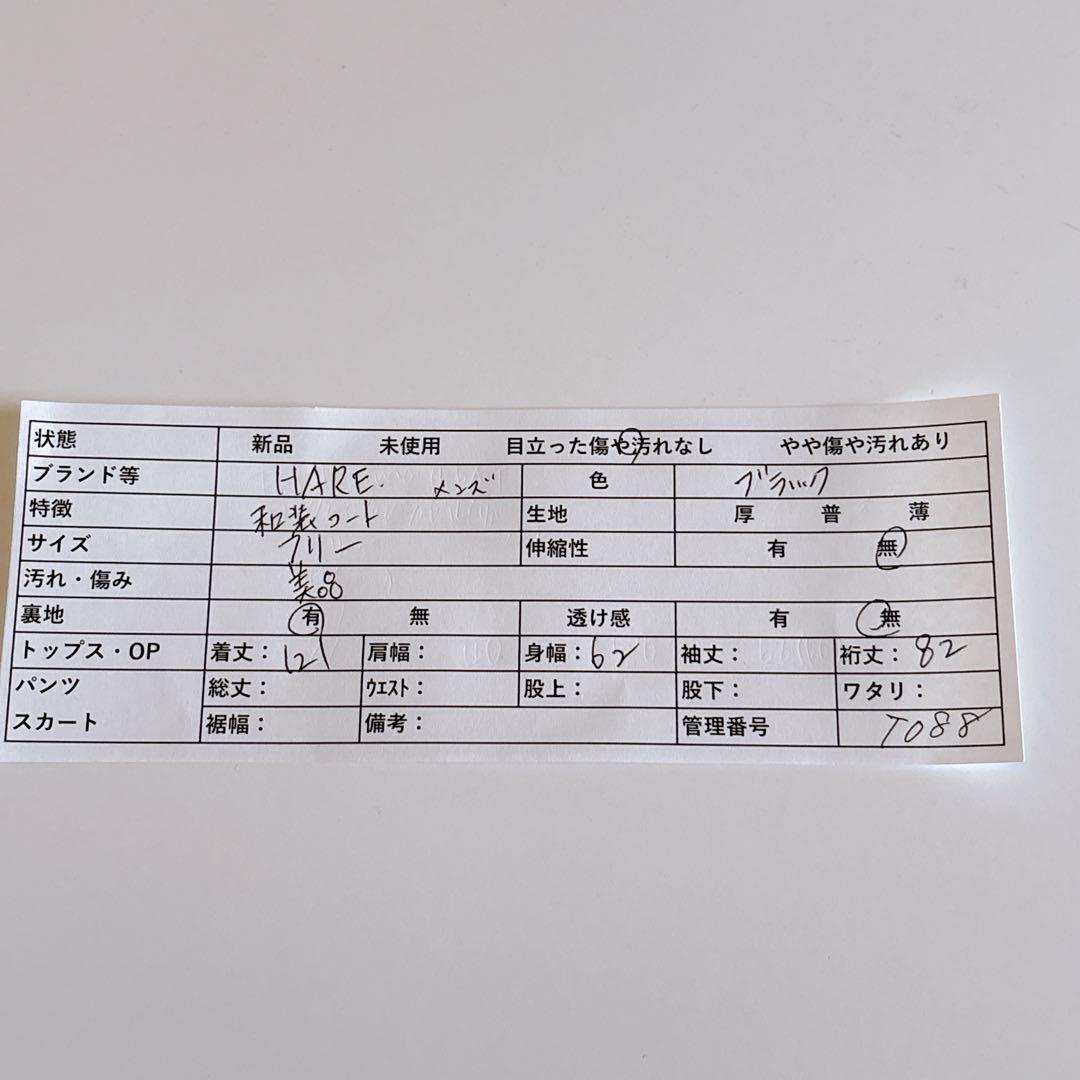 状態 新品 未使用 目立った傷や汚れなし やや傷や汚れあり
ブランド等 HARE. メンズ 色 ブラック
特徴 和装コート 生地 厚 普 薄
サイズ フリー 伸縮性 有 無
汚れ・傷み 美品
裏地 有 無 透け感 有 無
トップス・OP 着丈：121 肩幅： 身幅：62 袖丈： 裄丈：82
パンツ 総丈： ｳｴｽﾄ： 股上： 股下： ワタリ：
スカート 裾幅： 備考： 管理番号 T088